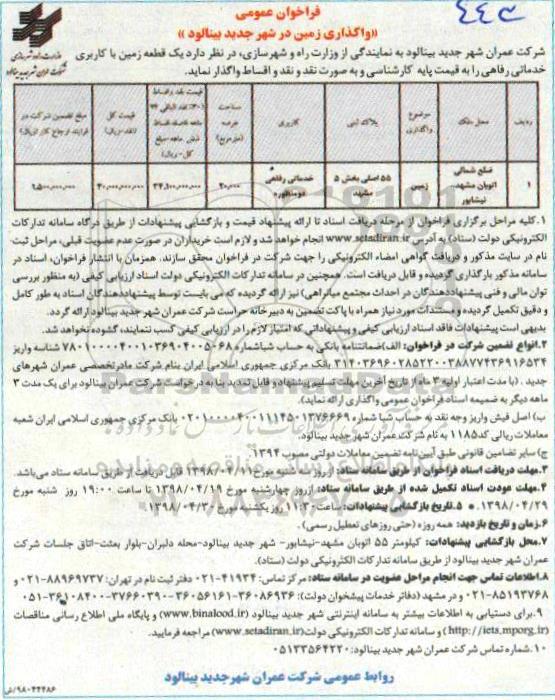 ۴۴۳
فراخوان عمومی
«واگذاری زمین در شهر جدید بینالود»
وزارت راه و شهرسازی
شرکت عمران شهر جدید بینالود
شرکت عمران شهر جدید بینالود به نمایندگی از وزارت راه و شهرسازی، در نظر دارد یک قطعه زمین با کاربری
خدماتی رفاهی را به قیمت پایه کارشناسی و به صورت نقد و نقد و اقساط واگذار نماید.
ردیف
محل ملک
موضوع واگذاری
پلاک ثبتی
کاربری
مساحت عرصه (مترمربع)
قیمت نقد و اقساط
قیمت کل (نقد-ریال)
مبلغ تضمین شرکت در فرایند ارجاع کار (ریال)
۱
ضلع شمالی اتوبان مشهد- نیشابور
زمین
۵۵ اصلی بخش ۵ مشهد
خدماتی رفاهی
۲۰,۰۰۰
۱.کلیه مراحل برگزاری فراخوان از مرحله دریافت اسناد تا ارائه پیشنهاد قیمت و بازگشایی پیشنهادات از طریق درگاه سامانه تدارکات
الکترونیکی دولت (ستاد) به آدرس www.setadiran.ir انجام خواهد شد و لازم است خریداران در صورت عدم عضویت قبلی، مراحل ثبت
نام در سایت مذکور و دریافت گواهی امضاء الکترونیکی را جهت شرکت در فراخوان محقق سازند. همزمان با انتشار فراخوان، اسناد در
سامانه مذکور بارگذاری گردیده و قابل دریافت است. همچنین در سامانه تدارکات الکترونیکی دولت اسناد ارزیابی کیفی (به منظور بررسی
توان مالی و فنی پیشنهاددهندگان در احداث مجتمع میانراهی) نیز ارائه گردیده که می بایست توسط پیشنهاددهندگان اسناد به طور کامل
و دقیق تکمیل گردیده و مستندات مورد نیاز همراه با پاکت تضمین به دبیرخانه حراست شرکت عمران شهر جدید بینالود ارائه گردد.
بدیهی است پیشنهادات فاقد اسناد ارزیابی کیفی و پیشنهاداتی که امتیاز لازم را در ارزیابی کیفی کسب ننمایند، گشوده نخواهد شد.
۲.انواع تضمین شرکت در فراخوان: الف)ضمانتنامه بانکی به حساب شباشماره ۷۸۰۱۰۰۰۰۴۰۰۱۰۳۶۹۰۴۰۰۵۰۶۸ شناسه واریز
۳۱۴۰۳۶۹۶۰۲۸۵۲۲۰۰۳۸۸۷۷۴۳۶۹۱۶۵۳۴ بانک مرکزی جمهوری اسلامی ایران بنام شرکت مادرتخصصی عمران شهرهای
جدید . (با مدت اعتبار اولیه ۳ ماه از تاریخ آخرین مهلت تسلیم پیشنهاد و قابل تمدید بنا به درخواست شرکت عمران بینالود برای یک مدت ۳
ماهه دیگر به ضمیمه اسناد فراخوان عمومی واگذاری ارائه نماید).
ب) اصل فیش واریز وجه نقد به حساب شبا شماره ۰۲۰۱۰۰۰۰۴۰۰۱۱۱۴۵۰۱۳۷۶۶۶۹ بانک مرکزی جمهوری اسلامی ایران شعبه
معاملات ریالی کد۱۱۸۵ به نام شرکت عمران شهر جدید بینالود.
ج) سایر تضامین قانونی طبق آیین نامه تضمین معاملات دولتی مصوب ۱۳۹۴
۳.مهلت دریافت اسناد فراخوان از طریق سامانه ستاد: ازروز سه شنبه مورخ ۱۳۹۸/۰۴/۱۱ قابل دریافت از طریق سامانه ستاد می‌باشد.
۴.مهلت عودت اسناد تکمیل شده از طریق سامانه ستاد: ازروز چهارشنبه مورخ ۱۳۹۸/۰۴/۱۹ تا ساعت ۱۹:۰۰ روز شنبه مورخ
۱۳۹۸/۰۴/۲۹. ۵.تاریخ بازگشایی پیشنهادات: ساعت ۱۱:۳۰ روز یکشنبه مورخ ۱۳۹۸/۰۴/۳۰.
۶.زمان و تاریخ بازدید: همه روزه (حتی روزهای تعطیل رسمی).
۷.محل بازگشایی پیشنهادات: کیلومتر ۵۵ اتوبان مشهد-نیشابور- شهر جدید بینالود-محله دلبران-بلوار بعثت-اتاق جلسات شرکت
عمران شهر جدید بینالود از طریق سامانه تدارکات الکترونیکی دولت (ستاد).
۸.اطلاعات تماس جهت انجام مراحل عضویت در سامانه ستاد: مرکز تماس: ۴۱۹۳۴-۰۲۱ دفتر ثبت نام در تهران: ۸۸۹۶۹۷۳۷-۰۲۱ و
۸۵۱۹۳۷۶۸-۰۲۱ و در مشهد (دفاتر خدمات پیشخوان دولت): ۳۶۰۸۶۹۳۶-۳۶۰۵۶۱۶۱-۳۷۶۶۰۳۹۰-۳۶۱۰۸۴۰۰-۰۵۱
۹.برای دستیابی به اطلاعات بیشتر به سامانه اینترنتی شهر جدید بینالود (www.binalood.ir) و پایگاه ملی اطلاع رسانی مناقصات
(http://iets.mporg.ir) و سامانه تدارکات الکترونیکی دولت (www.setadiran.ir) مراجعه فرمایید.
۱۰.شماره تماس شرکت عمران شهر جدید بینالود: ۰۵۱۳۳۵۶۴۲۲۰
روابط عمومی شرکت عمران شهرجدید بینالود
۹۸۰۴۴۴۸۶/ش